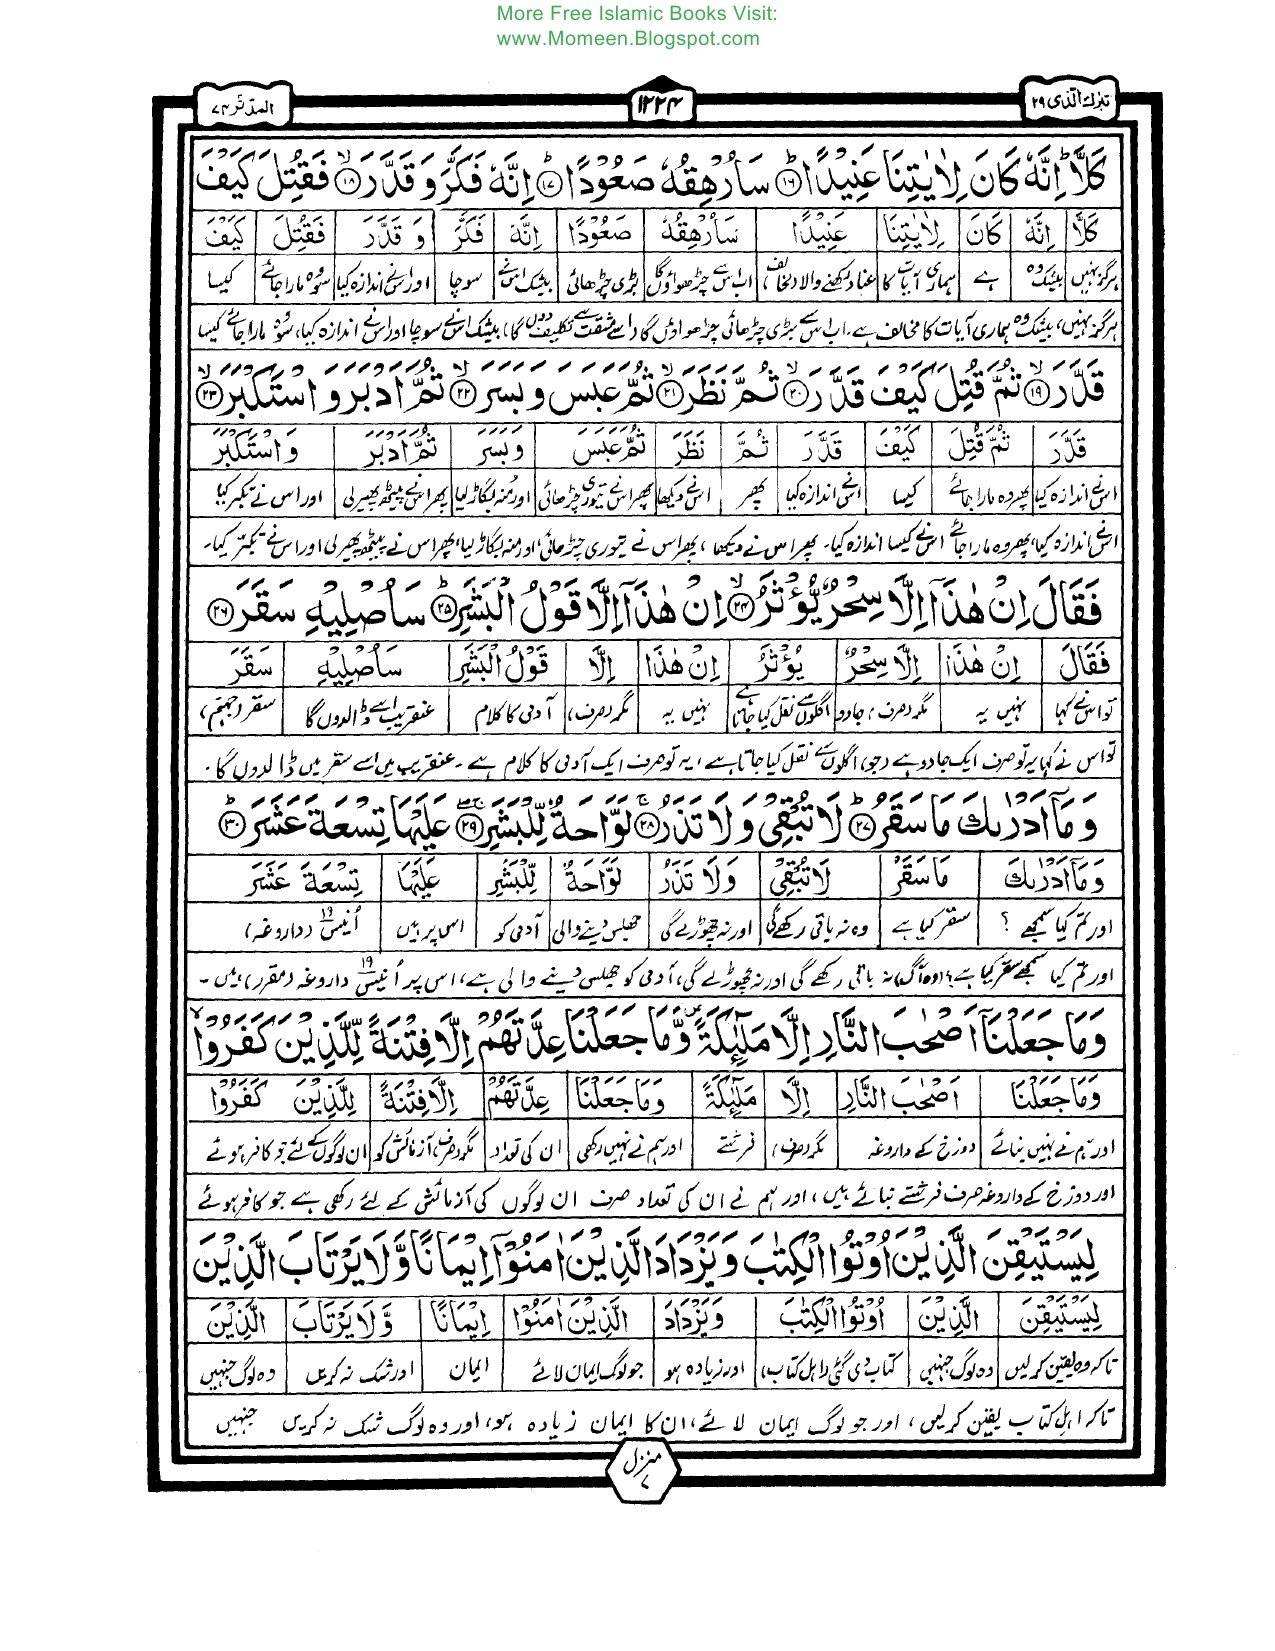 More Free Islamic Books Visit:
www.Momeen.Blogspot.com
تبٰرك الّذی ۲۹
۱۲۲۴
المدّثّر ۷۴
كَلَّا ؕ اِنَّهٗ كَانَ لِاٰيٰتِنَا عَنِيْدًا ؕ۝۱۶ سَاُرْهِقُهٗ صَعُوْدًا ؕ۝۱۷ اِنَّهٗ فَكَّرَ وَ قَدَّرَ ۙ۝۱۸ فَقُتِلَ كَيْفَ
كَلَّا اِنَّهٗ كَانَ لِاٰيٰتِنَا عَنِيْدًا سَاُرْهِقُهٗ صَعُوْدًا اِنَّهٗ فَكَّرَ وَ قَدَّرَ فَقُتِلَ كَيْفَ
ہرگز نہیں بیشک وہ ہے ہماری آیات کا عناد رکھنے والا (مخالف) اب اسے چڑھواؤں گا بڑی چڑھائی بیشک اس نے سوچا اور اس نے اندازہ کیا سو وہ مارا جائے کیسا
ہرگز نہیں، بیشک وہ ہماری آیات کا مخالف ہے۔ اب اس سے بڑی چڑھائی چڑھواؤں گا (اسے مشقت سے تکلیف دوں گا)، بیشک اس نے سوچا اور اس نے اندازہ کیا، سو وہ مارا جائے کیسا
قَدَّرَ ۙ۝۱۹ ثُمَّ قُتِلَ كَيْفَ قَدَّرَ ۙ۝۲۰ ثُمَّ نَظَرَ ۙ۝۲۱ ثُمَّ عَبَسَ وَ بَسَرَ ۙ۝۲۲ ثُمَّ اَدْبَرَ وَ اسْتَكْبَرَ ۙ۝۲۳
قَدَّرَ ثُمَّ قُتِلَ كَيْفَ قَدَّرَ ثُمَّ نَظَرَ ثُمَّ عَبَسَ وَ بَسَرَ ثُمَّ اَدْبَرَ وَ اسْتَكْبَرَ
اس نے اندازہ کیا پھر وہ مارا جائے کیسا اس نے اندازہ کیا پھر اس نے دیکھا پھر اس نے تیوری چڑھائی اور منہ بگاڑ لیا پھر اس نے پیٹھ پھیر لی اور اس نے تکبر کیا
اس نے اندازہ کیا، پھر وہ مارا جائے اس نے کیسا اندازہ کیا۔ پھر اس نے دیکھا، پھر اس نے تیوری چڑھائی، اور منہ بگاڑ لیا، پھر اس نے پیٹھ پھیر لی اور اس نے تکبّر کیا۔
فَقَالَ اِنْ هٰذَاۤ اِلَّا سِحْرٌ يُّؤْثَرُ ۙ۝۲۴ اِنْ هٰذَاۤ اِلَّا قَوْلُ الْبَشَرِ ؕ۝۲۵ سَاُصْلِيْهِ سَقَرَ ۝۲۶
فَقَالَ اِنْ هٰذَاۤ اِلَّا سِحْرٌ يُؤْثَرُ اِنْ هٰذَاۤ اِلَّا قَوْلُ الْبَشَرِ سَاُصْلِيْهِ سَقَرَ
تو اس نے کہا نہیں یہ مگر (صرف) جادو اگلوں سے نقل کیا جاتا ہے نہیں یہ مگر (صرف) آدمی کا کلام عنقریب اسے ڈالدوں گا سقر (جہنم)
تو اس نے کہا یہ تو صرف ایک جادو ہے (جو) اگلوں سے نقل کیا جاتا ہے، یہ تو صرف ایک آدمی کا کلام ہے۔ عنقریب میں اسے سقر میں ڈالدوں گا۔
وَ مَاۤ اَدْرٰىكَ مَا سَقَرُ ؕ۝۲۷ لَا تُبْقِيْ وَ لَا تَذَرُ ۚ۝۲۸ لَوَّاحَةٌ لِّلْبَشَرِ ۚۖ۝۲۹ عَلَيْهَا تِسْعَةَ عَشَرَ ؕ۝۳۰
وَ مَاۤ اَدْرٰىكَ مَا سَقَرُ لَا تُبْقِيْ وَ لَا تَذَرُ لَوَّاحَةٌ لِّلْبَشَرِ عَلَيْهَا تِسْعَةَ عَشَرَ
اور تم کیا سمجھے؟ سقر کیا ہے وہ نہ باقی رکھے گی اور نہ چھوڑے گی جھلس دینے والی آدمی کو اس پر ہیں اُنیس ۱۹ (داروغہ)
اور تم کیا سمجھے سقر کیا ہے؟ (وہ آگ) نہ باقی رکھے گی اور نہ چھوڑے گی، آدمی کو جھلس دینے والی ہے، اس پر اُنیس ۱۹ داروغہ (مقرر) ہیں۔
وَ مَا جَعَلْنَاۤ اَصْحٰبَ النَّارِ اِلَّا مَلٰٓئِكَةً ۪ وَّ مَا جَعَلْنَا عِدَّتَهُمْ اِلَّا فِتْنَةً لِّلَّذِيْنَ كَفَرُوْا ۙ
وَ مَا جَعَلْنَا اَصْحٰبَ النَّارِ اِلَّا مَلٰٓئِكَةً وَ مَا جَعَلْنَا عِدَّتَهُمْ اِلَّا فِتْنَةً لِّلَّذِيْنَ كَفَرُوْا
اور ہم نے نہیں بنائے دوزخ کے داروغہ مگر (صرف) فرشتے اور ہم نے نہیں رکھی ان کی تعداد مگر (صرف) آزمائش کو ان لوگوں کے لئے جو کافر ہوئے
اور دوزخ کے داروغہ صرف فرشتے بنائے ہیں، اور ہم نے ان کی تعداد صرف ان لوگوں کی آزمائش کے لئے رکھی ہے جو کافر ہوئے
لِيَسْتَيْقِنَ الَّذِيْنَ اُوْتُوا الْكِتٰبَ وَ يَزْدَادَ الَّذِيْنَ اٰمَنُوْۤا اِيْمَانًا وَّ لَا يَرْتَابَ الَّذِيْنَ
لِيَسْتَيْقِنَ الَّذِيْنَ اُوْتُوا الْكِتٰبَ وَ يَزْدَادَ الَّذِيْنَ اٰمَنُوْا اِيْمَانًا وَّ لَا يَرْتَابَ الَّذِيْنَ
تاکہ وہ یقین کر لیں وہ لوگ جنہیں کتاب دی گئی (اہل کتاب) اور زیادہ ہو جو لوگ ایمان لائے ایمان اور شک نہ کریں وہ لوگ جنہیں
تاکہ اہلِ کتاب یقین کر لیں، اور جو لوگ ایمان لائے، ان کا ایمان زیادہ ہو، اور وہ لوگ شک نہ کریں جنہیں
منزل ۷